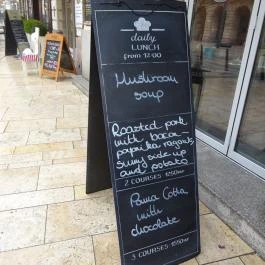 daily
LUNCH
from 12:00
Mushroom
soup
Roasted pork
with bacon
paprika ragout,
sunny side up
and potato
2 COURSES 1250HUF
Panna Cotta
with
chocolate
3 COURSES 1550HUF